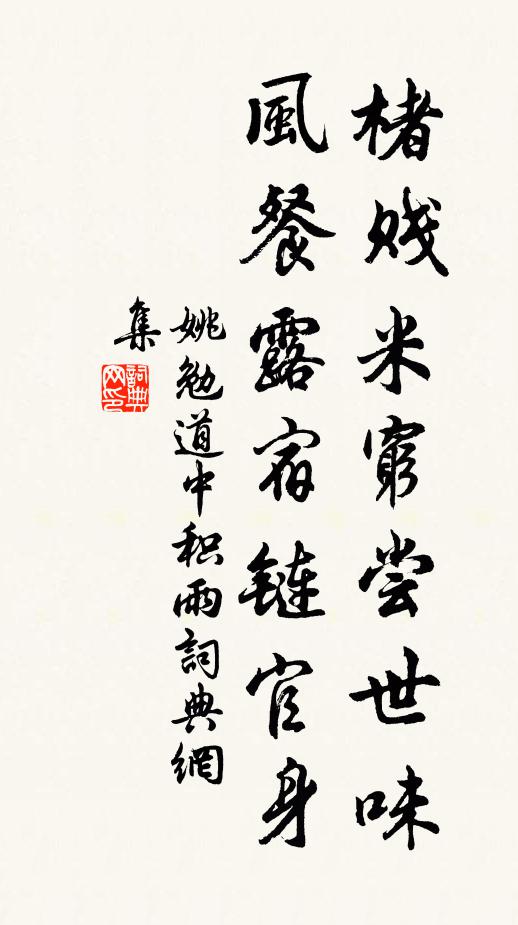 楮贱米窮尝世味
風餐露宿鏈官身
姚勉道中积雨詞典網
集
詞典网印